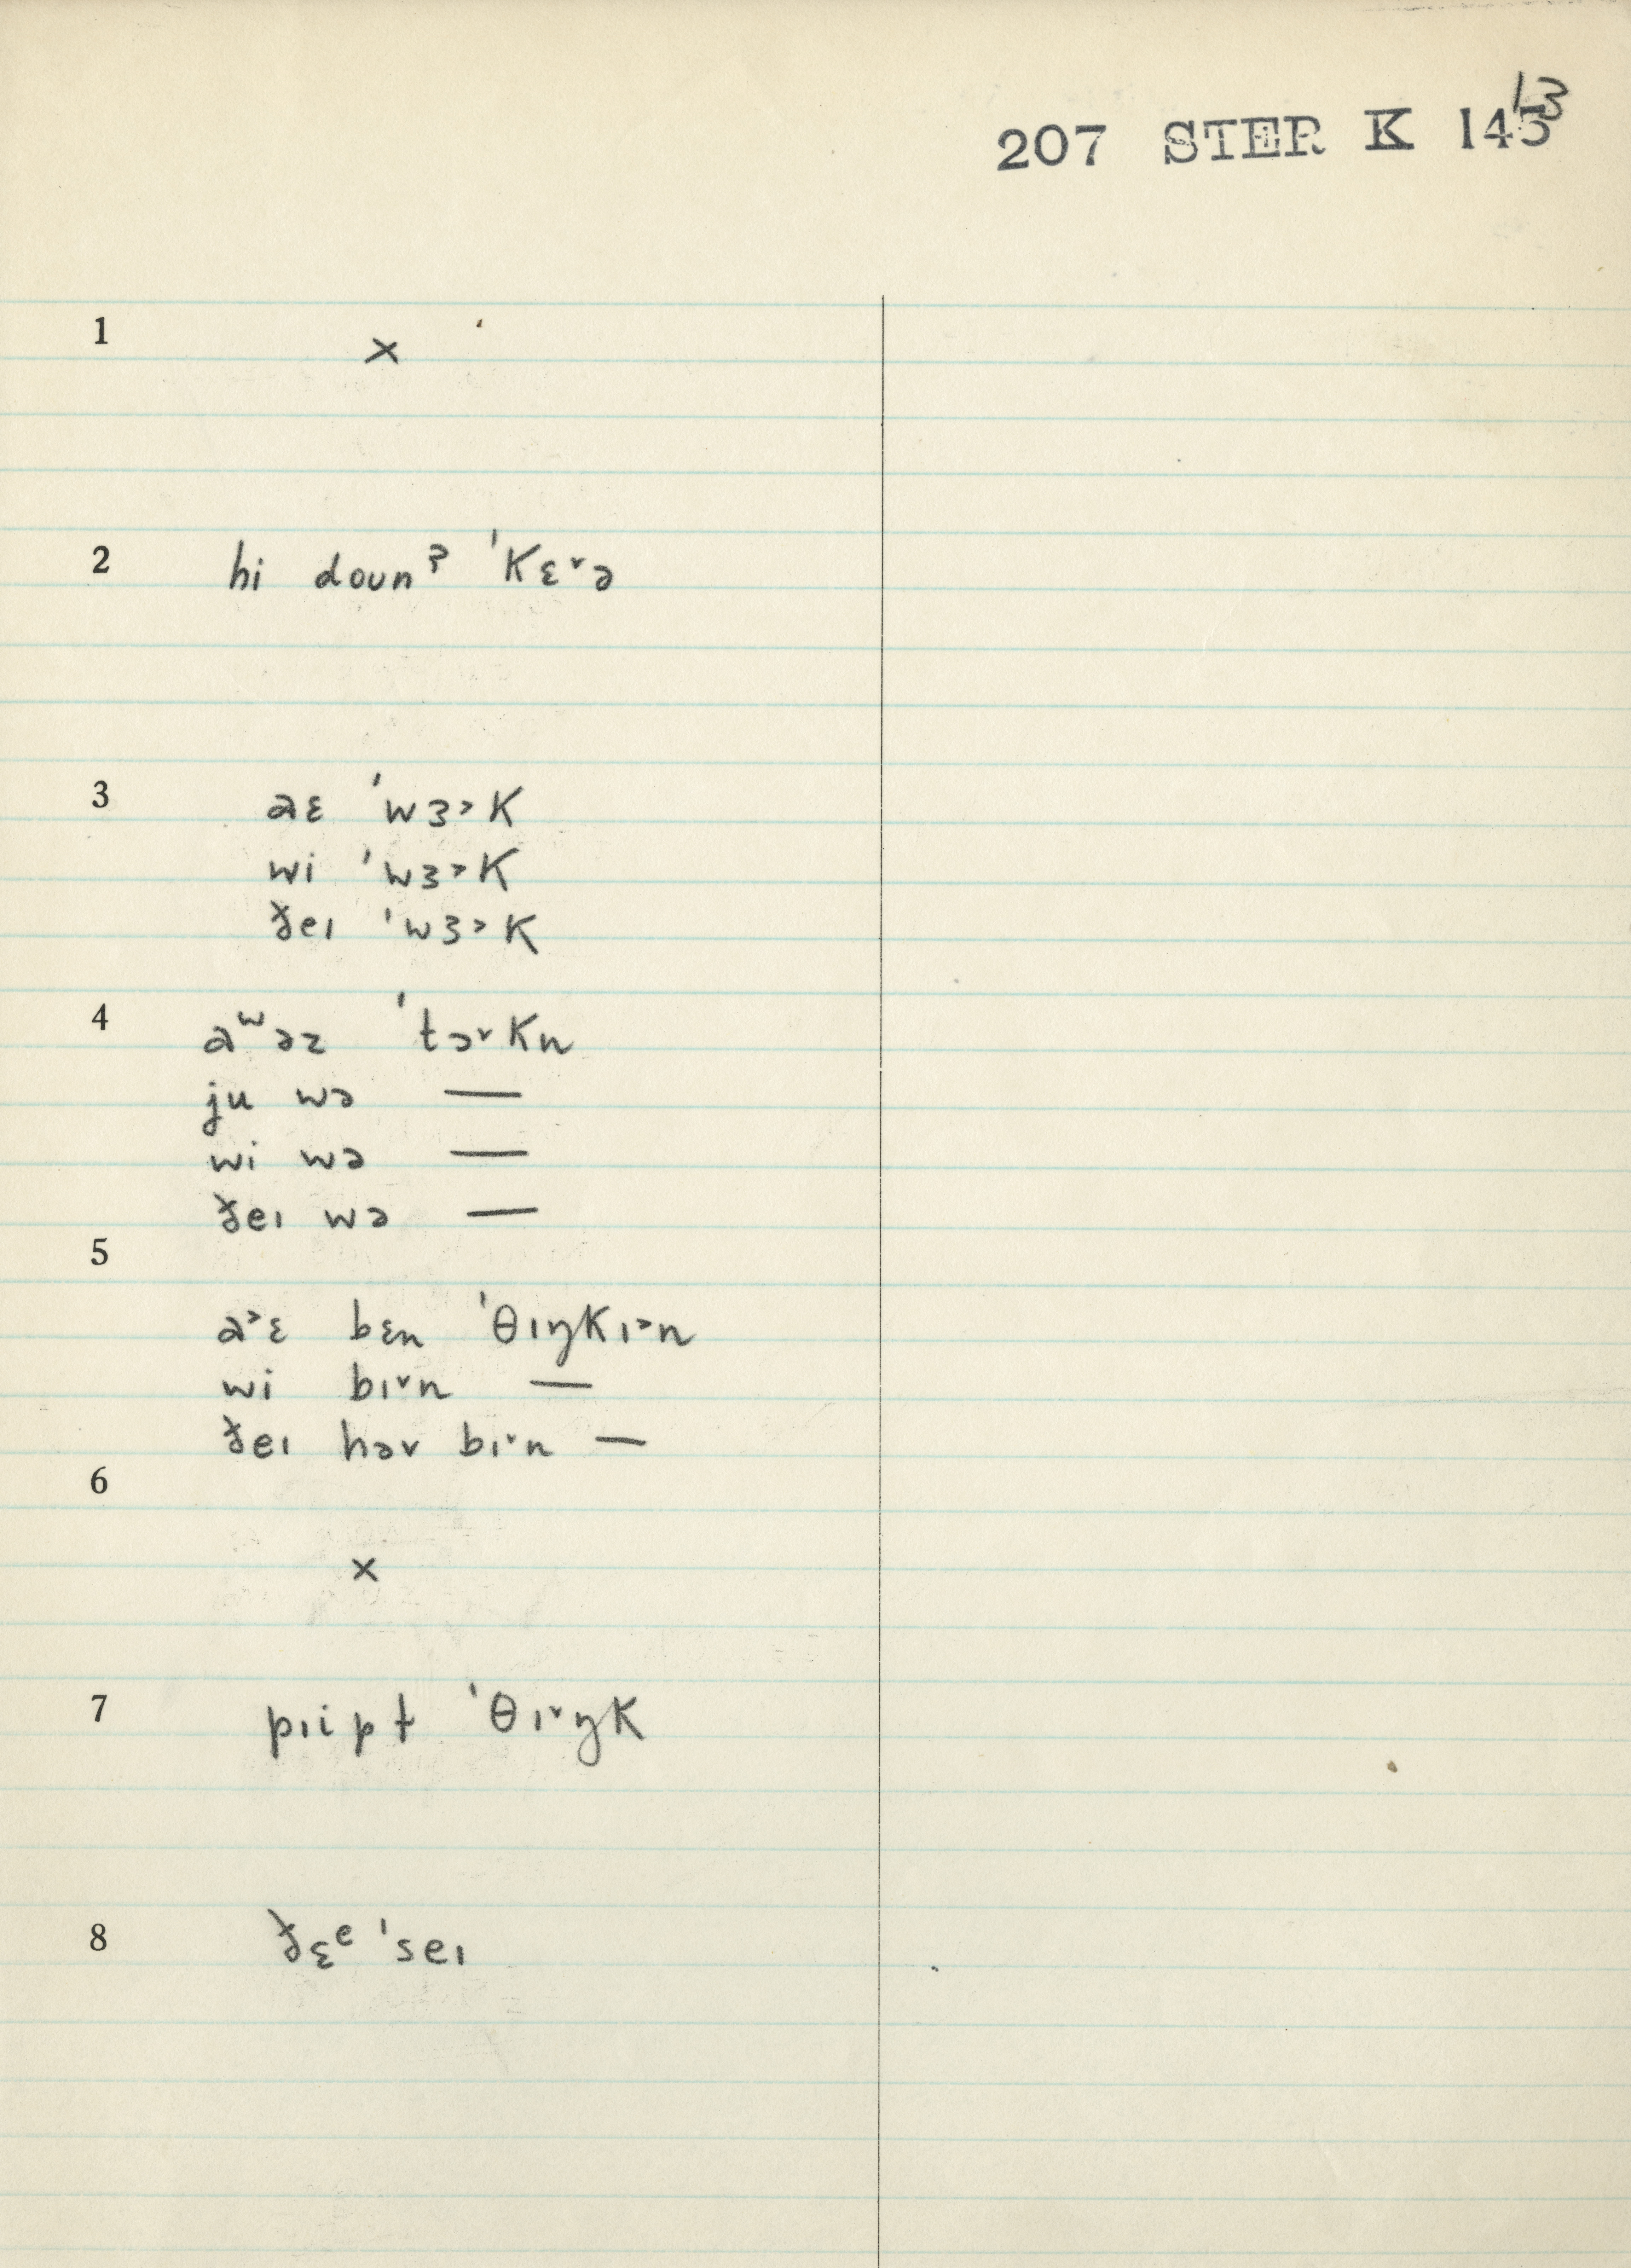 13
207 STER K 145
1 ×
2 hi doun ʔ ˈKɛ˅ə
3 aɛ ˈwɜ˃K
wi ˈwɜ˃K
ðeɪ ˈwɜ˃K
4 aʷəz ˈtɔ˅Kn
ju wə —
wi wə —
ðeɪ wə —
5
a˃ɛ bɛn ˈθɪŋKɪ˃n
wi bɪ˅n —
ðeɪ həv bɪ˅n —
6
×
7 pɪipɫ ˈθɪ˅ŋK
8 ðɛᵉ ˈseɪ